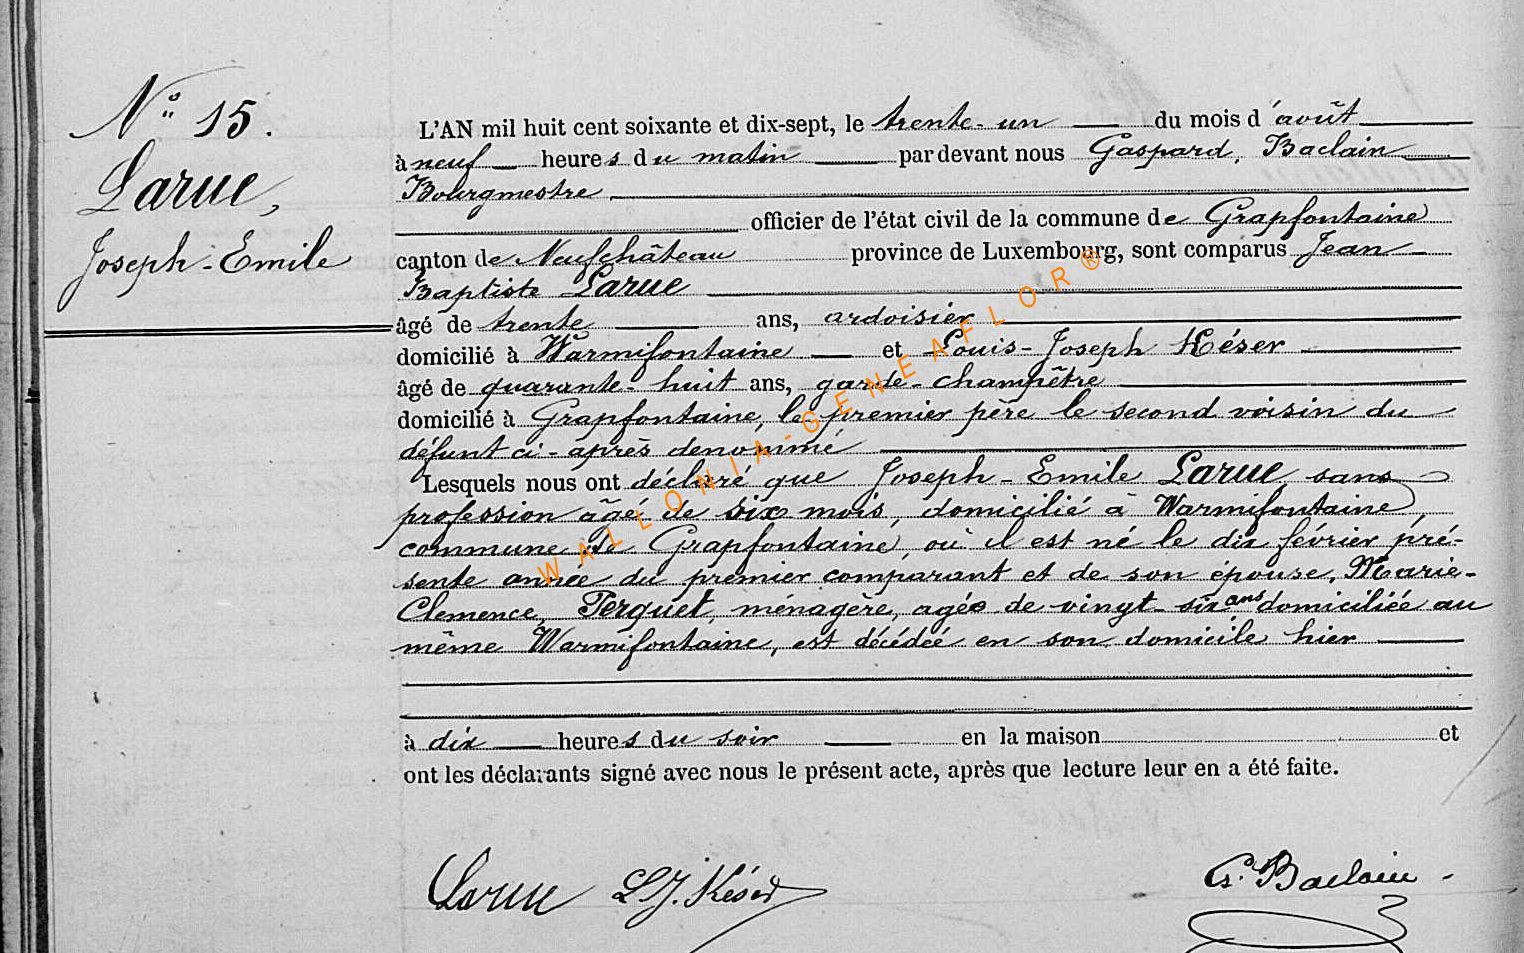 N° 15.
Larue,
Joseph-Emile
L'AN mil huit cent soixante et dix-sept, le trente-un du mois d'août
à neuf heures du matin par devant nous Gaspard, Baclain
Bourgmestre
officier de l'état civil de la commune de Grapfontaine
canton de Neufchâteau province de Luxembourg, sont comparus Jean
Baptiste Larue
âgé de trente ans, ardoisier
domicilié à Warmifontaine et Louis-Joseph Késer
âgé de quarante-huit ans, garde-champêtre
domicilié à Grapfontaine, le premier père le second voisin du
défunt ci-après denommé
Lesquels nous ont déclaré que Joseph-Emile Larue, sans
profession âgé de six mois, domicilié à Warmifontaine,
commune de Grapfontaine, où il est né le dix février pré-
sente année du premier comparant et de son épouse, Marie-
Clemence, Terguet, ménagère, agée de vingt-six ans domiciliée au
même Warmifontaine, est décédée en son domicile hier
à dix heures du soir en la maison et
ont les déclarants signé avec nous le présent acte, après que lecture leur en a été faite.
Larue L.J. Késer G. Baclain
WALLONIA-GENEAFLOR®